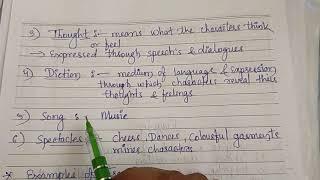 3) Thought :- means what the characters think
or feel
→ Expressed through speech's & dialogues
4) Diction :- medium of language & expression
through which characters reveal their
thoughts & feelings
5) Song : Music
6) Spectacles - Cheers, Dances, Colourful garments
mimes characters
* Examples of